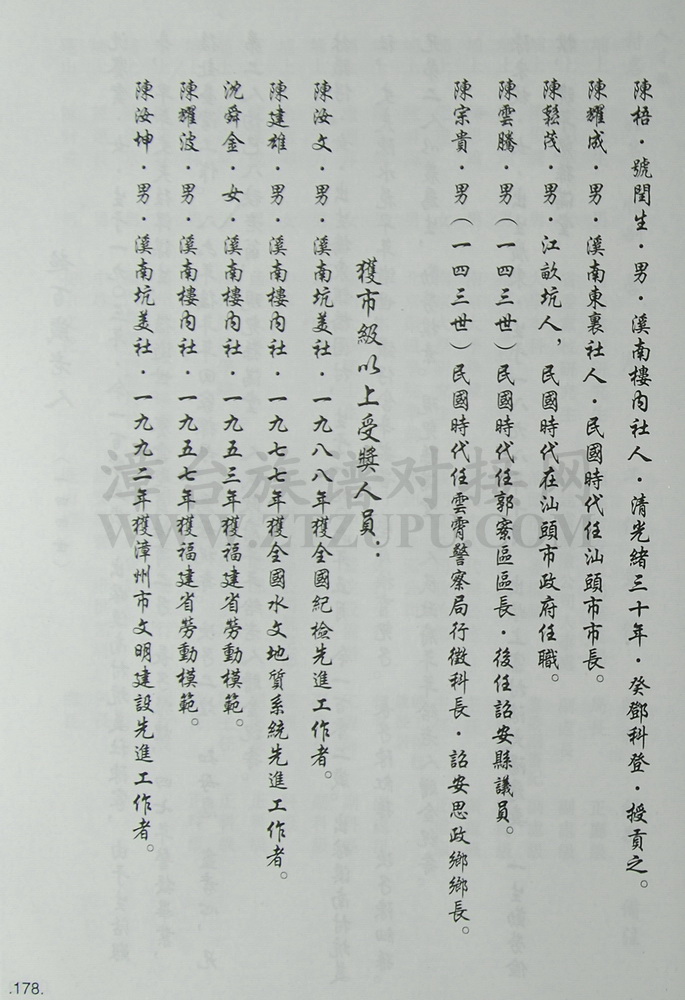 陳梧·號閏生·男·溪南樓內社人·清光緒三十年·癸鄧科登·授貢之。
陳耀成·男·溪南東裏社人·民國時代任汕頭市市長。
陳鬆茂·男·江畝坑人，民國時代在汕頭市政府任職。
陳雲騰·男（一四三世）民國時代任郭寮區區長·後任詔安縣議員。
陳宗貴·男（一四三世）民國時代任雲霄警察局行徵科長·詔安思政鄉鄉長。
獲市級以上受獎人員：
陳汝文·男·溪南坑美社·一九八八年獲全國紀檢先進工作者。
陳建雄·男·溪南樓內社·一九七七年獲全國水文地質系統先進工作者。
沈舜金·女·溪南樓內社·一九五三年獲福建省勞動模範。
陳耀波·男·溪南樓內社·一九五七年獲福建省勞動模範。
陳汝坤·男·溪南坑美社·一九九二年獲漳州市文明建設先進工作者。
漳台族谱对接网
WWW.ZTZUPU.COM
.178.